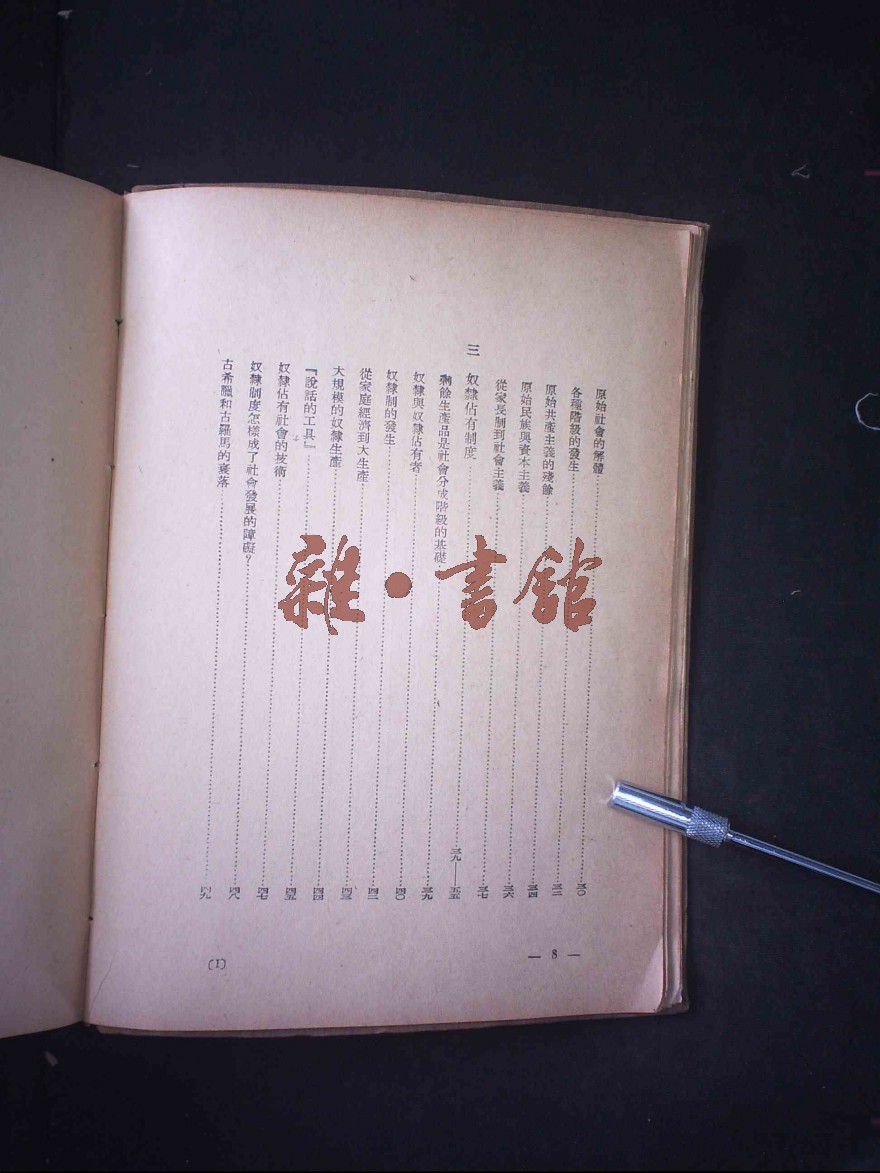 原始社會的解體……三〇
各種階級的發生……三二
原始共產主義的殘餘……三四
原始民族與資本主義……三六
從家長制到社會主義……三七
三 奴隸佔有制度……三九——五五
剩餘生產品是社會分成階級的基礎……三九
奴隸與奴隸佔有者……四〇
奴隸制的發生……四二
從家庭經濟到大生產……四三
大規模的奴隸生產……四四
『說話的工具』……四五
奴隸佔有社會的技術……四七
奴隸制度怎樣成了社會發展的障礙？……四八
古希臘和古羅馬的衰落……四九
雜·書館
— 8 —
(1)